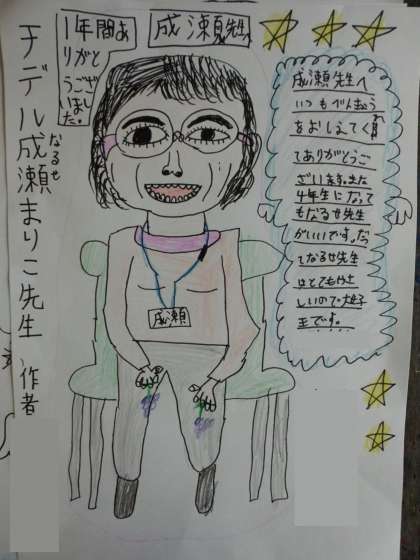 成瀬先生
1年間あ
りがと
うござ
いまし
た。
成瀬先生へ
いつもべんきょう
をおしえてくれ
てありがとうご
ざいます。また
4年生になって
もなるせ先生
がいいです。だっ
てなるせ先生
はとてもやさ
しいので大好
きです。
モデル成瀬まりこ先生 作者
なるせ
成瀬